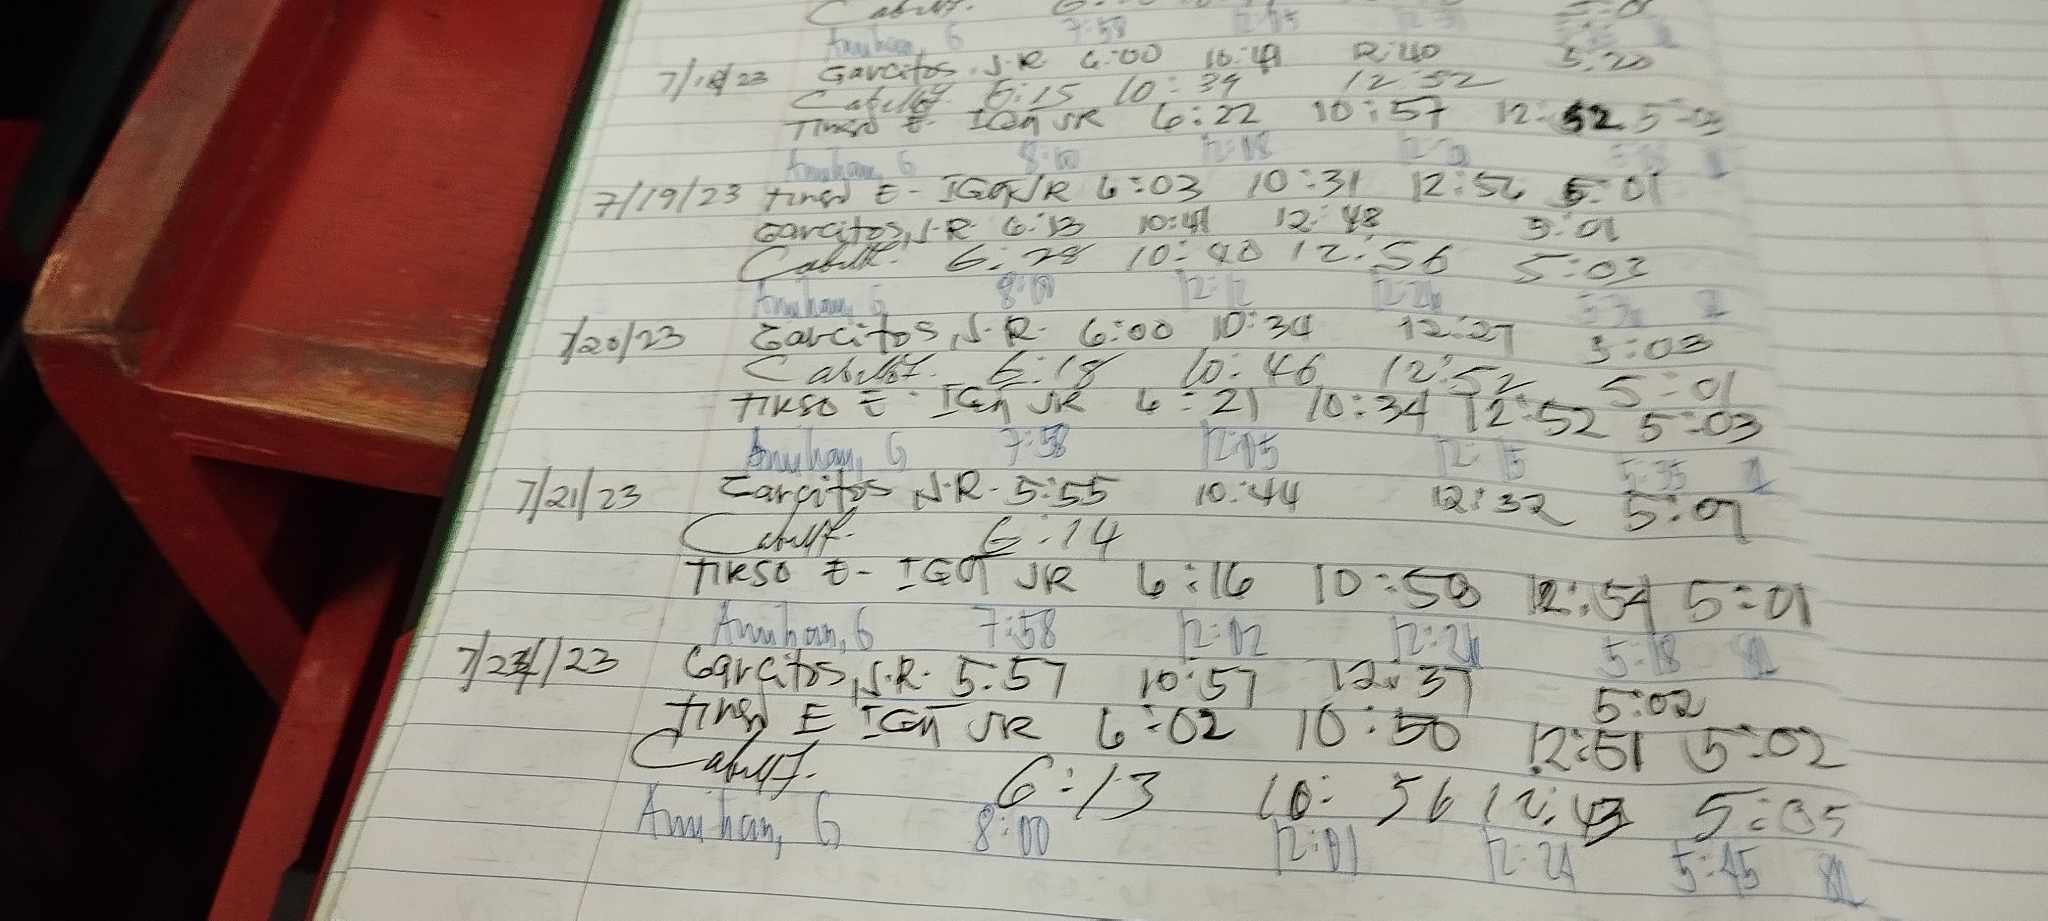 Anihan, G 7:58 12:15
7/18/23 Garcitos, J.R 6:00 10:49 12:40 5:20
6:15 10:39 12:52
Tirso E. IGOT JR 6:22 10:57 12:52 5:03
Anihan, G 8:00 12:08
7/19/23 Tirso E- IGOT JR 6:03 10:31 12:56 5:01
Garcitos, J.R. 6:13 10:41 12:48 5:01
6:28 10:40 12:56 5:03
Anihan, G 8:00 12:12 12:26
7/20/23 Garcitos, J.R. 6:00 10:34 12:27 5:03
6:18 10:46 12:52 5:01
TIRSO E- IGOT JR 6:21 10:34 12:52 5:03
Anihan, G 7:58 12:05 12:15 5:35
7/21/23 Garcitos, J.R. 5:55 10:44 12:32 5:07
6:14
TIRSO E- IGOT JR 6:16 10:58 12:54 5:01
Anihan, G 7:58 12:02 12:21 5:18
7/24/23 Garcitos, J.R. 5:57 10:57 12:37 5:02
Tirso E IGOT JR 6:02 10:50 12:51 5:02
6:13 10:56 12:43 5:05
Anihan, G 8:00 12:01 12:24 5:45